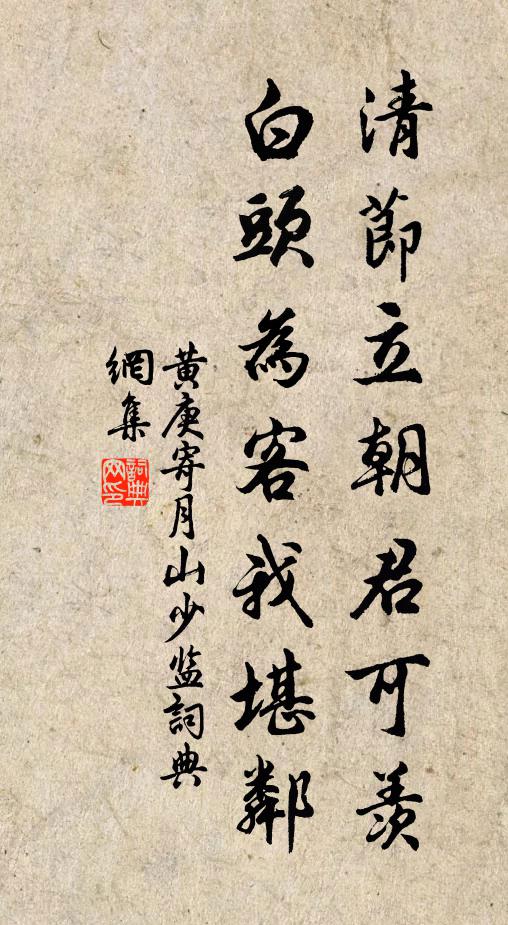 清節立朝君可羨
白頭為客我堪鄰
黃庚寄月山少監詞典
網集
詞典网印